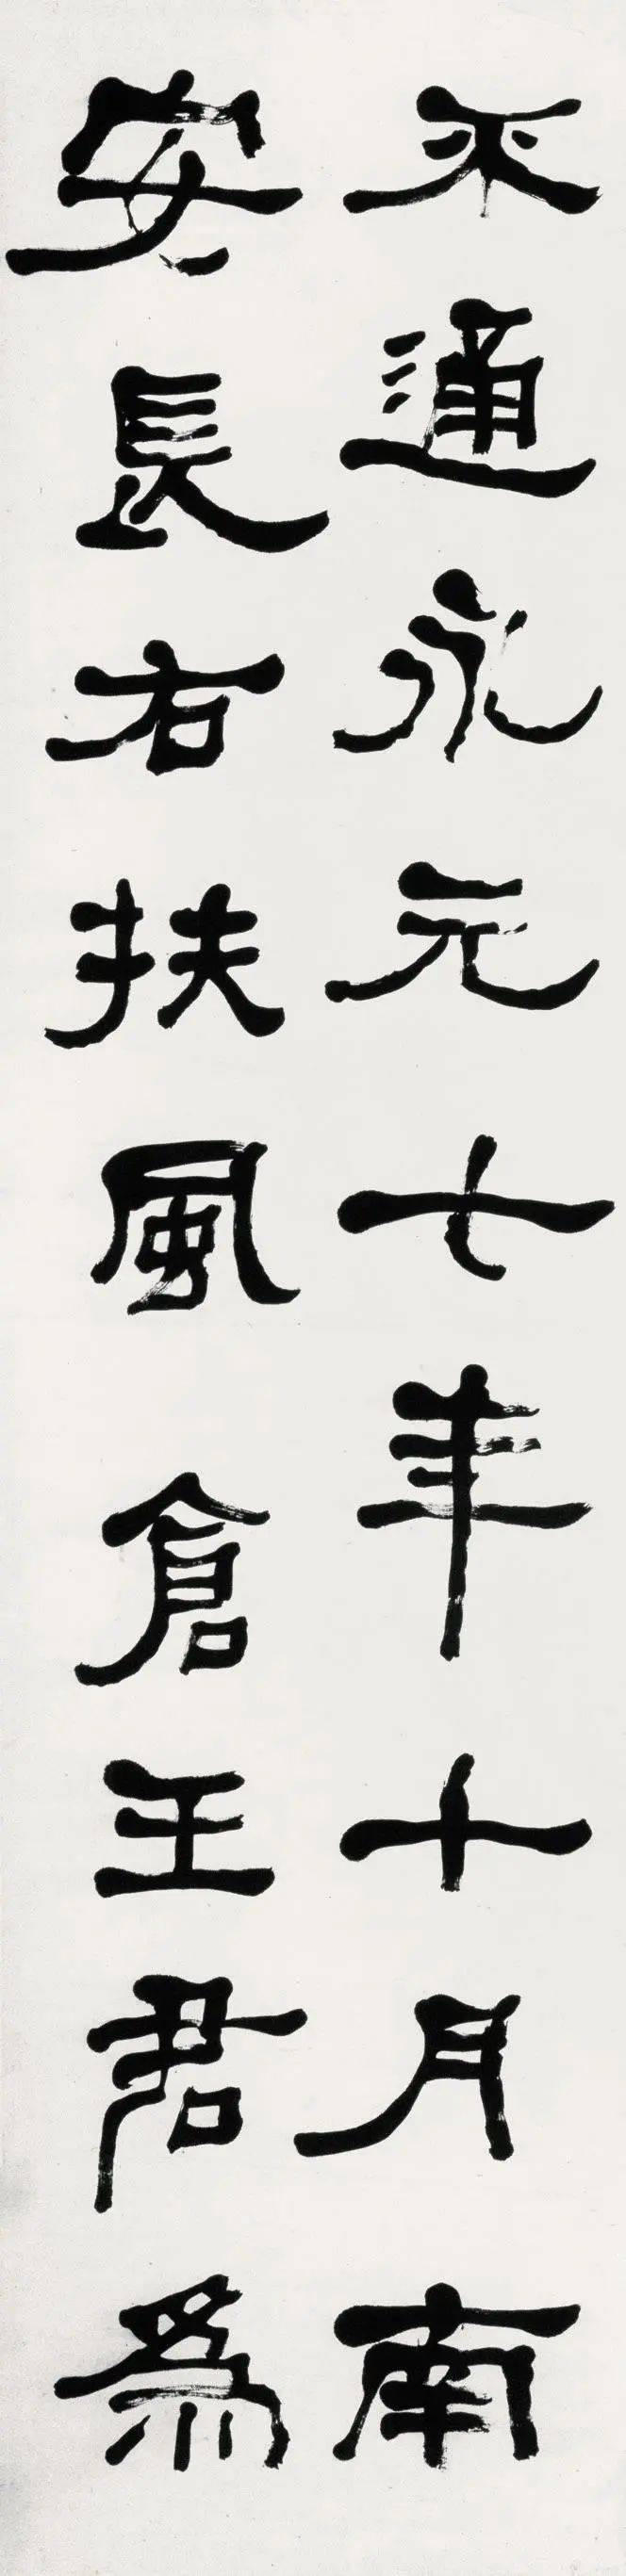 平通永元七年十月南
安長右扶風倉王君為